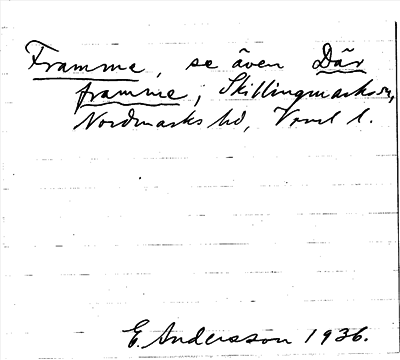 Framme, se även Där
framme; Skillingmarks sn,
Nordmarks hd, Vrml l.
E. Andersson 1936.